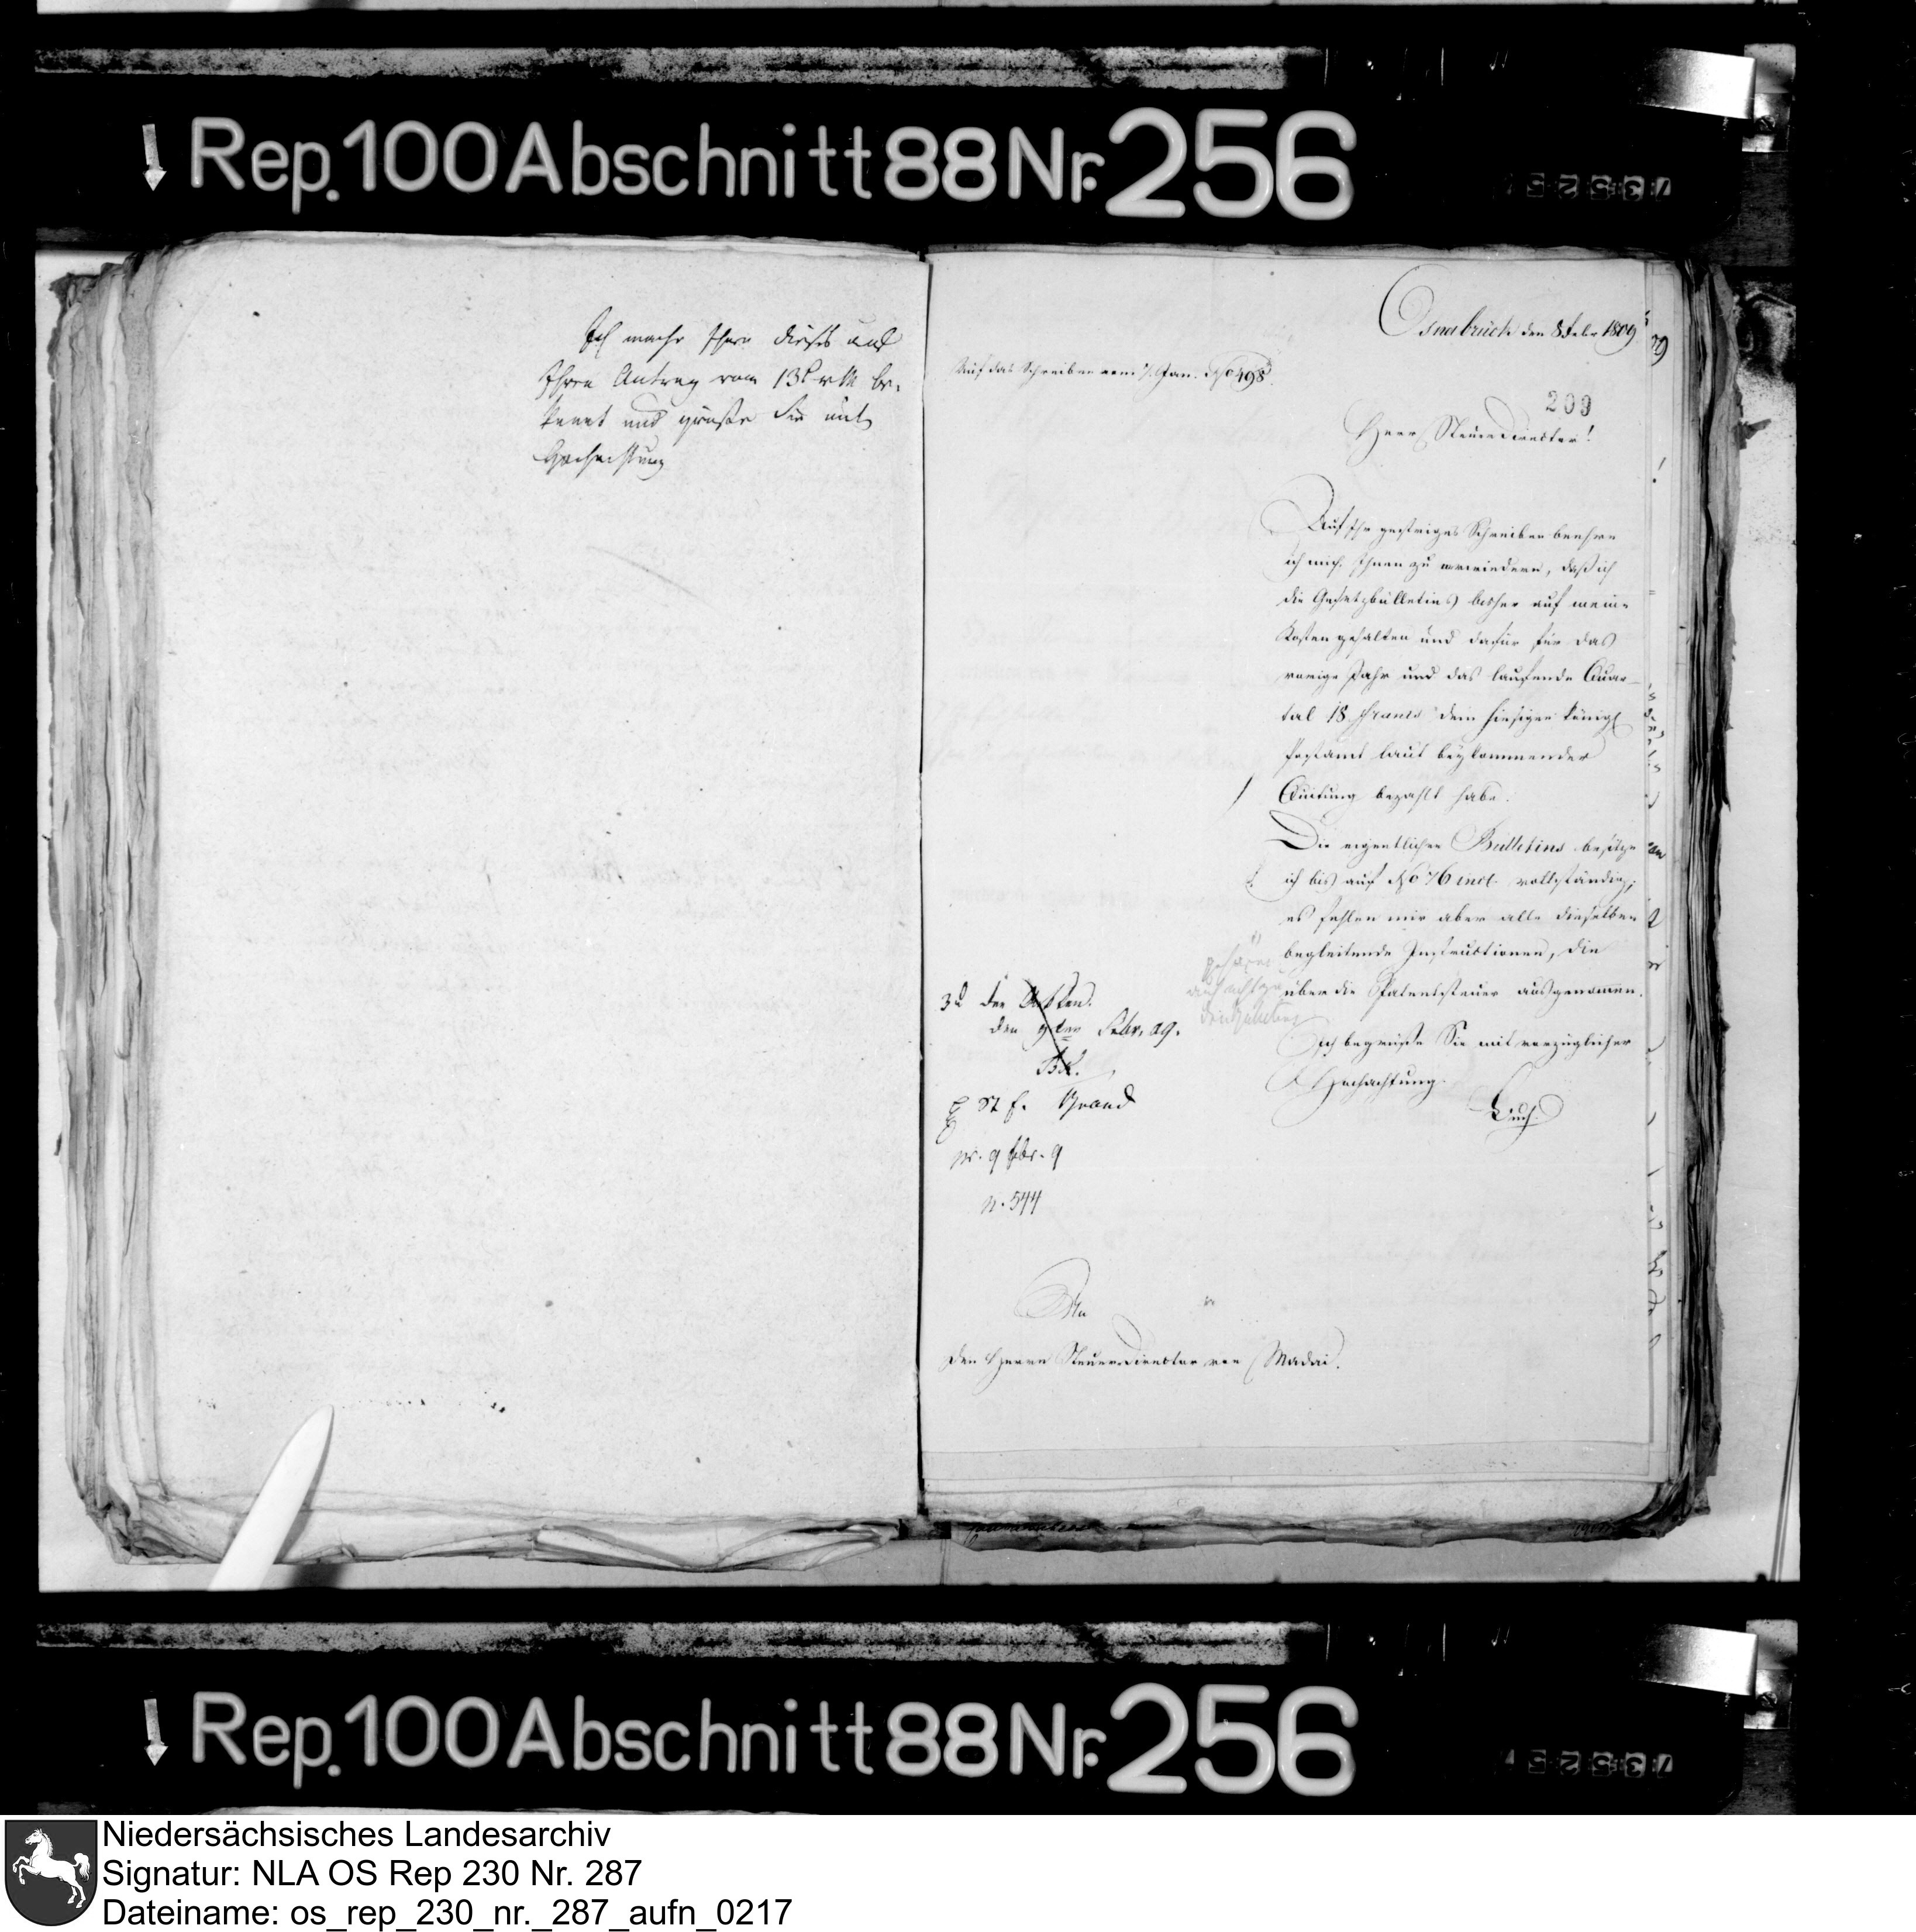 Rep. 100 Abschnitt 88 Nr. 256
Ich mache Ihnen dieses auf
Ihren Antrag vom 13t v M be-
kannt und grüße Sie mit
Hochachtung
Osnabrück den 8 Febr 1809
Auf das Schreiben vom 7. Jan. No 498
209
Herr Steuerdirector!
Auf Ihr gestriges Schreiben beehre
ich mich Ihnen zu erwiedern, daß ich
die Gesetzbülletins bisher auf meine
Kosten gehalten und dafür für das
vorige Jahr und das laufende Quar-
tal 18 Francs dem hiesigen Königl
Postamt laut beykommender
Quitung bezahlt habe.
Die eigentlichen Bülletins besitze
ich bis auf No 76 incl. vollständig;
es fehlen mir aber alle dieselben
begleitende Instructionen, die
über die Patentsteuer ausgenommen.
Ich begrüße Sie mit vorzüglicher
Hochachtung.
Zu den Akten.
den 9ten Febr. 09.
pr. 9 Fbr. 9
n. 544
An
den Herrn Steuerdirector von Madai.
Rep. 100 Abschnitt 88 Nr. 256
Niedersächsisches Landesarchiv
Signatur: NLA OS Rep 230 Nr. 287
Dateiname: os_rep_230_nr._287_aufn_0217